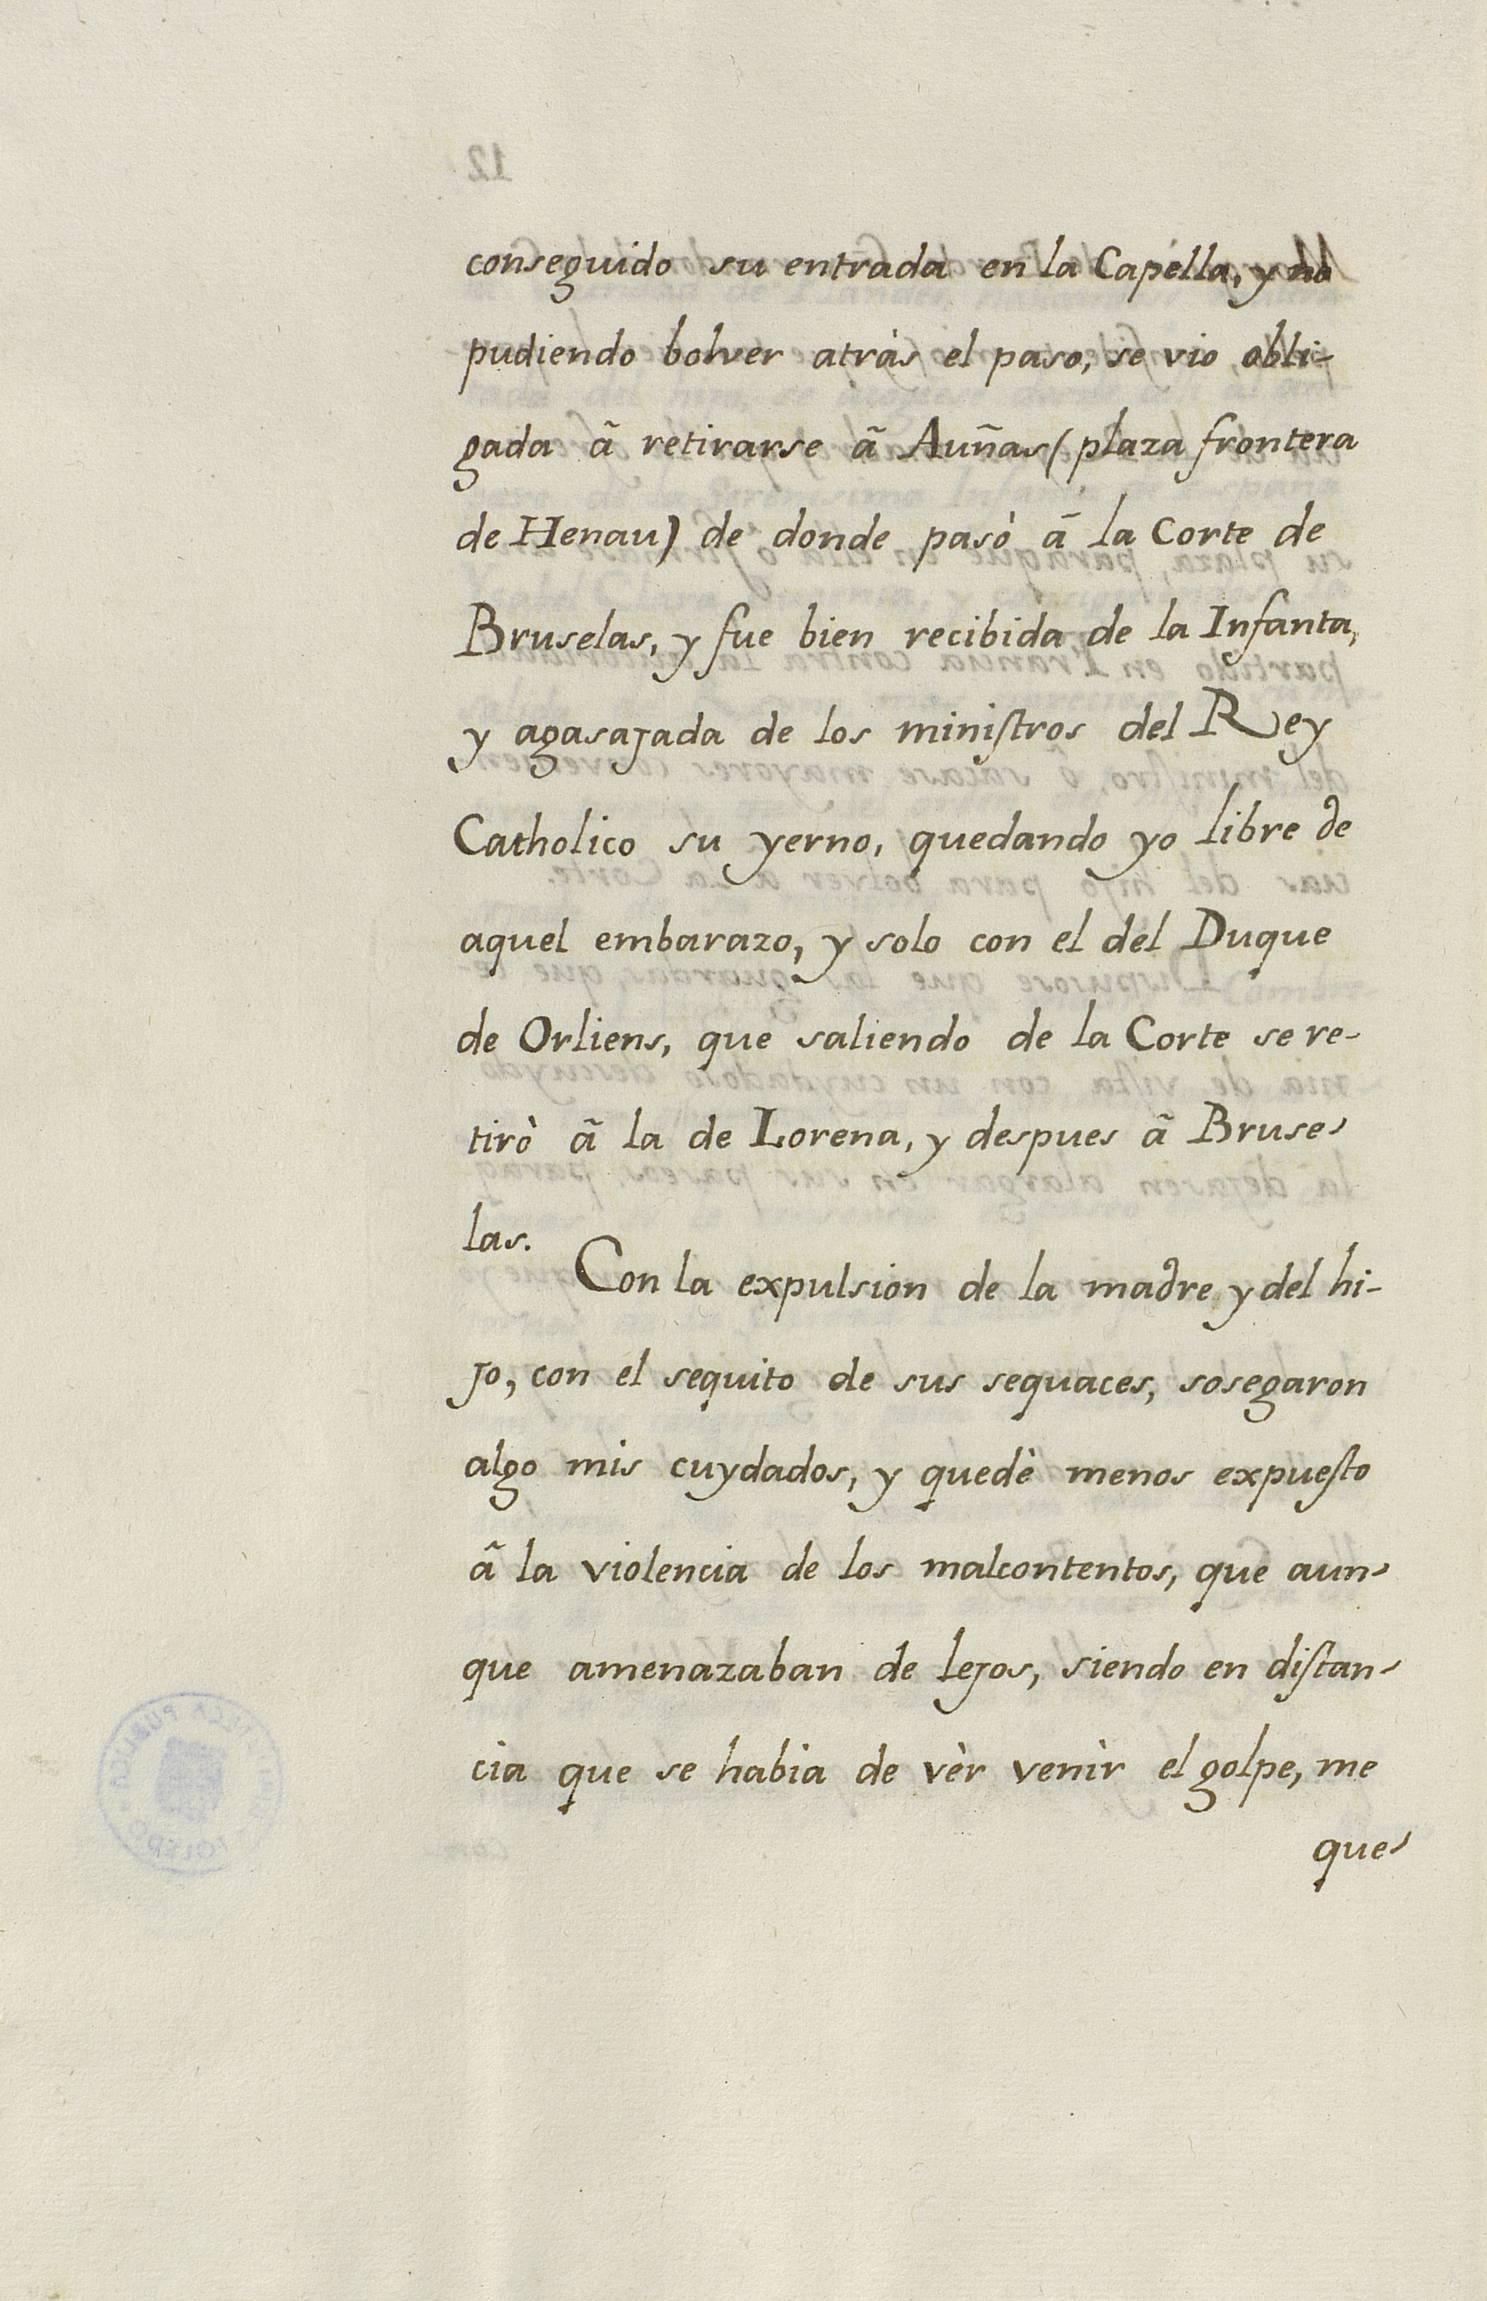 conseguido su entrada en la Capella, y no
pudiendo bolver atràs el paso, se vio obli-
gada ã retirarse ã Auñas (plaza frontera
de Henau) de donde pasò ã la Corte de
Bruselas, y fue bien recibida de la Infanta,
y agasajada de los miniſtros del Rey
Catholico su yerno, quedando yo libre de
aquel embarazo, y solo con el del Duque
de Orliens, que saliendo de la Corte se re-
tirò ã la de Lorena, y despues ã Bruse-
las.
Con la expulsion de la madre y del hi-
jo, con el sequito de sus sequaces, sosegaron
algo mis cuydados, y quedè menos expueſto
ã la violencia de los malcontentos, que aun-
que amenazaban de lejos, siendo en diſtan-
cia que se habia de vèr venìr el golpe, me
que-